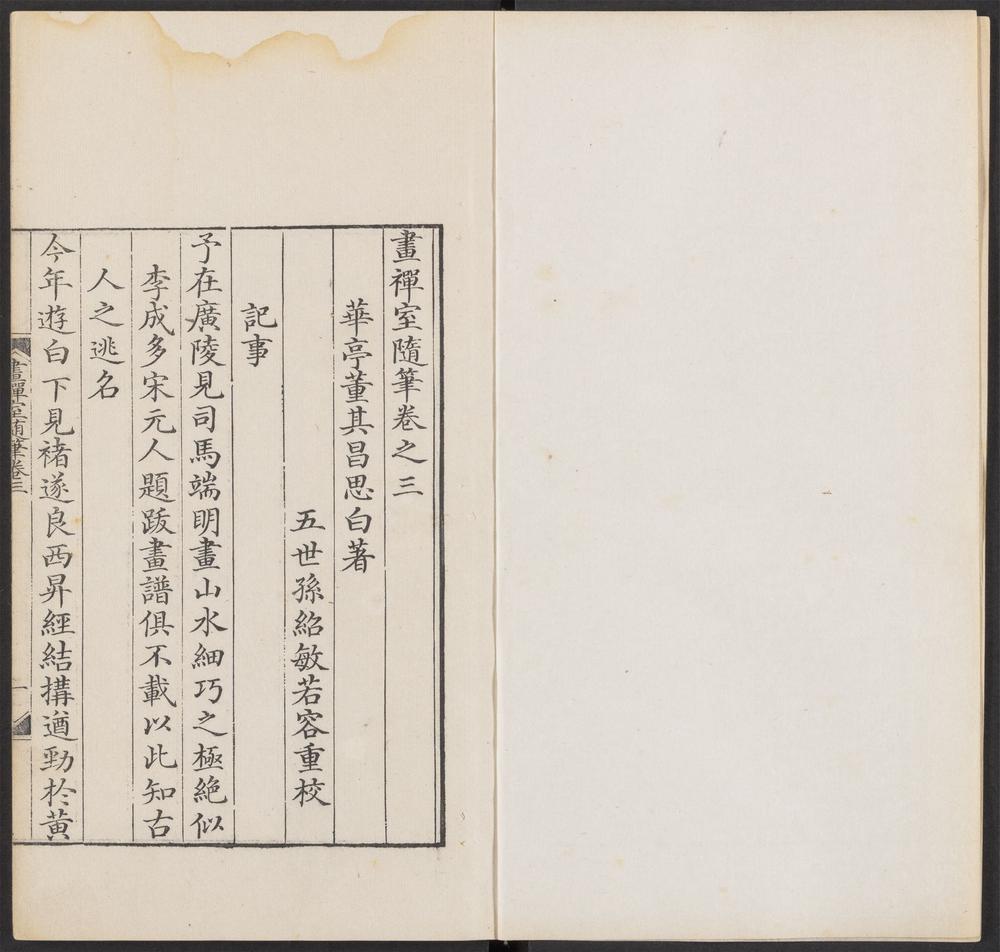 畫禪室隨筆卷之三
華亭董其昌思白著
五世孫紹敏若容重校
記事
予在廣陵見司馬端明畫山水細巧之極絕似
李成多宋元人題跋畫譜俱不載以此知古
人之逃名
今年遊白下見褚遂良西昇經結搆遒勁於黃
畫禪室隨筆卷三
一